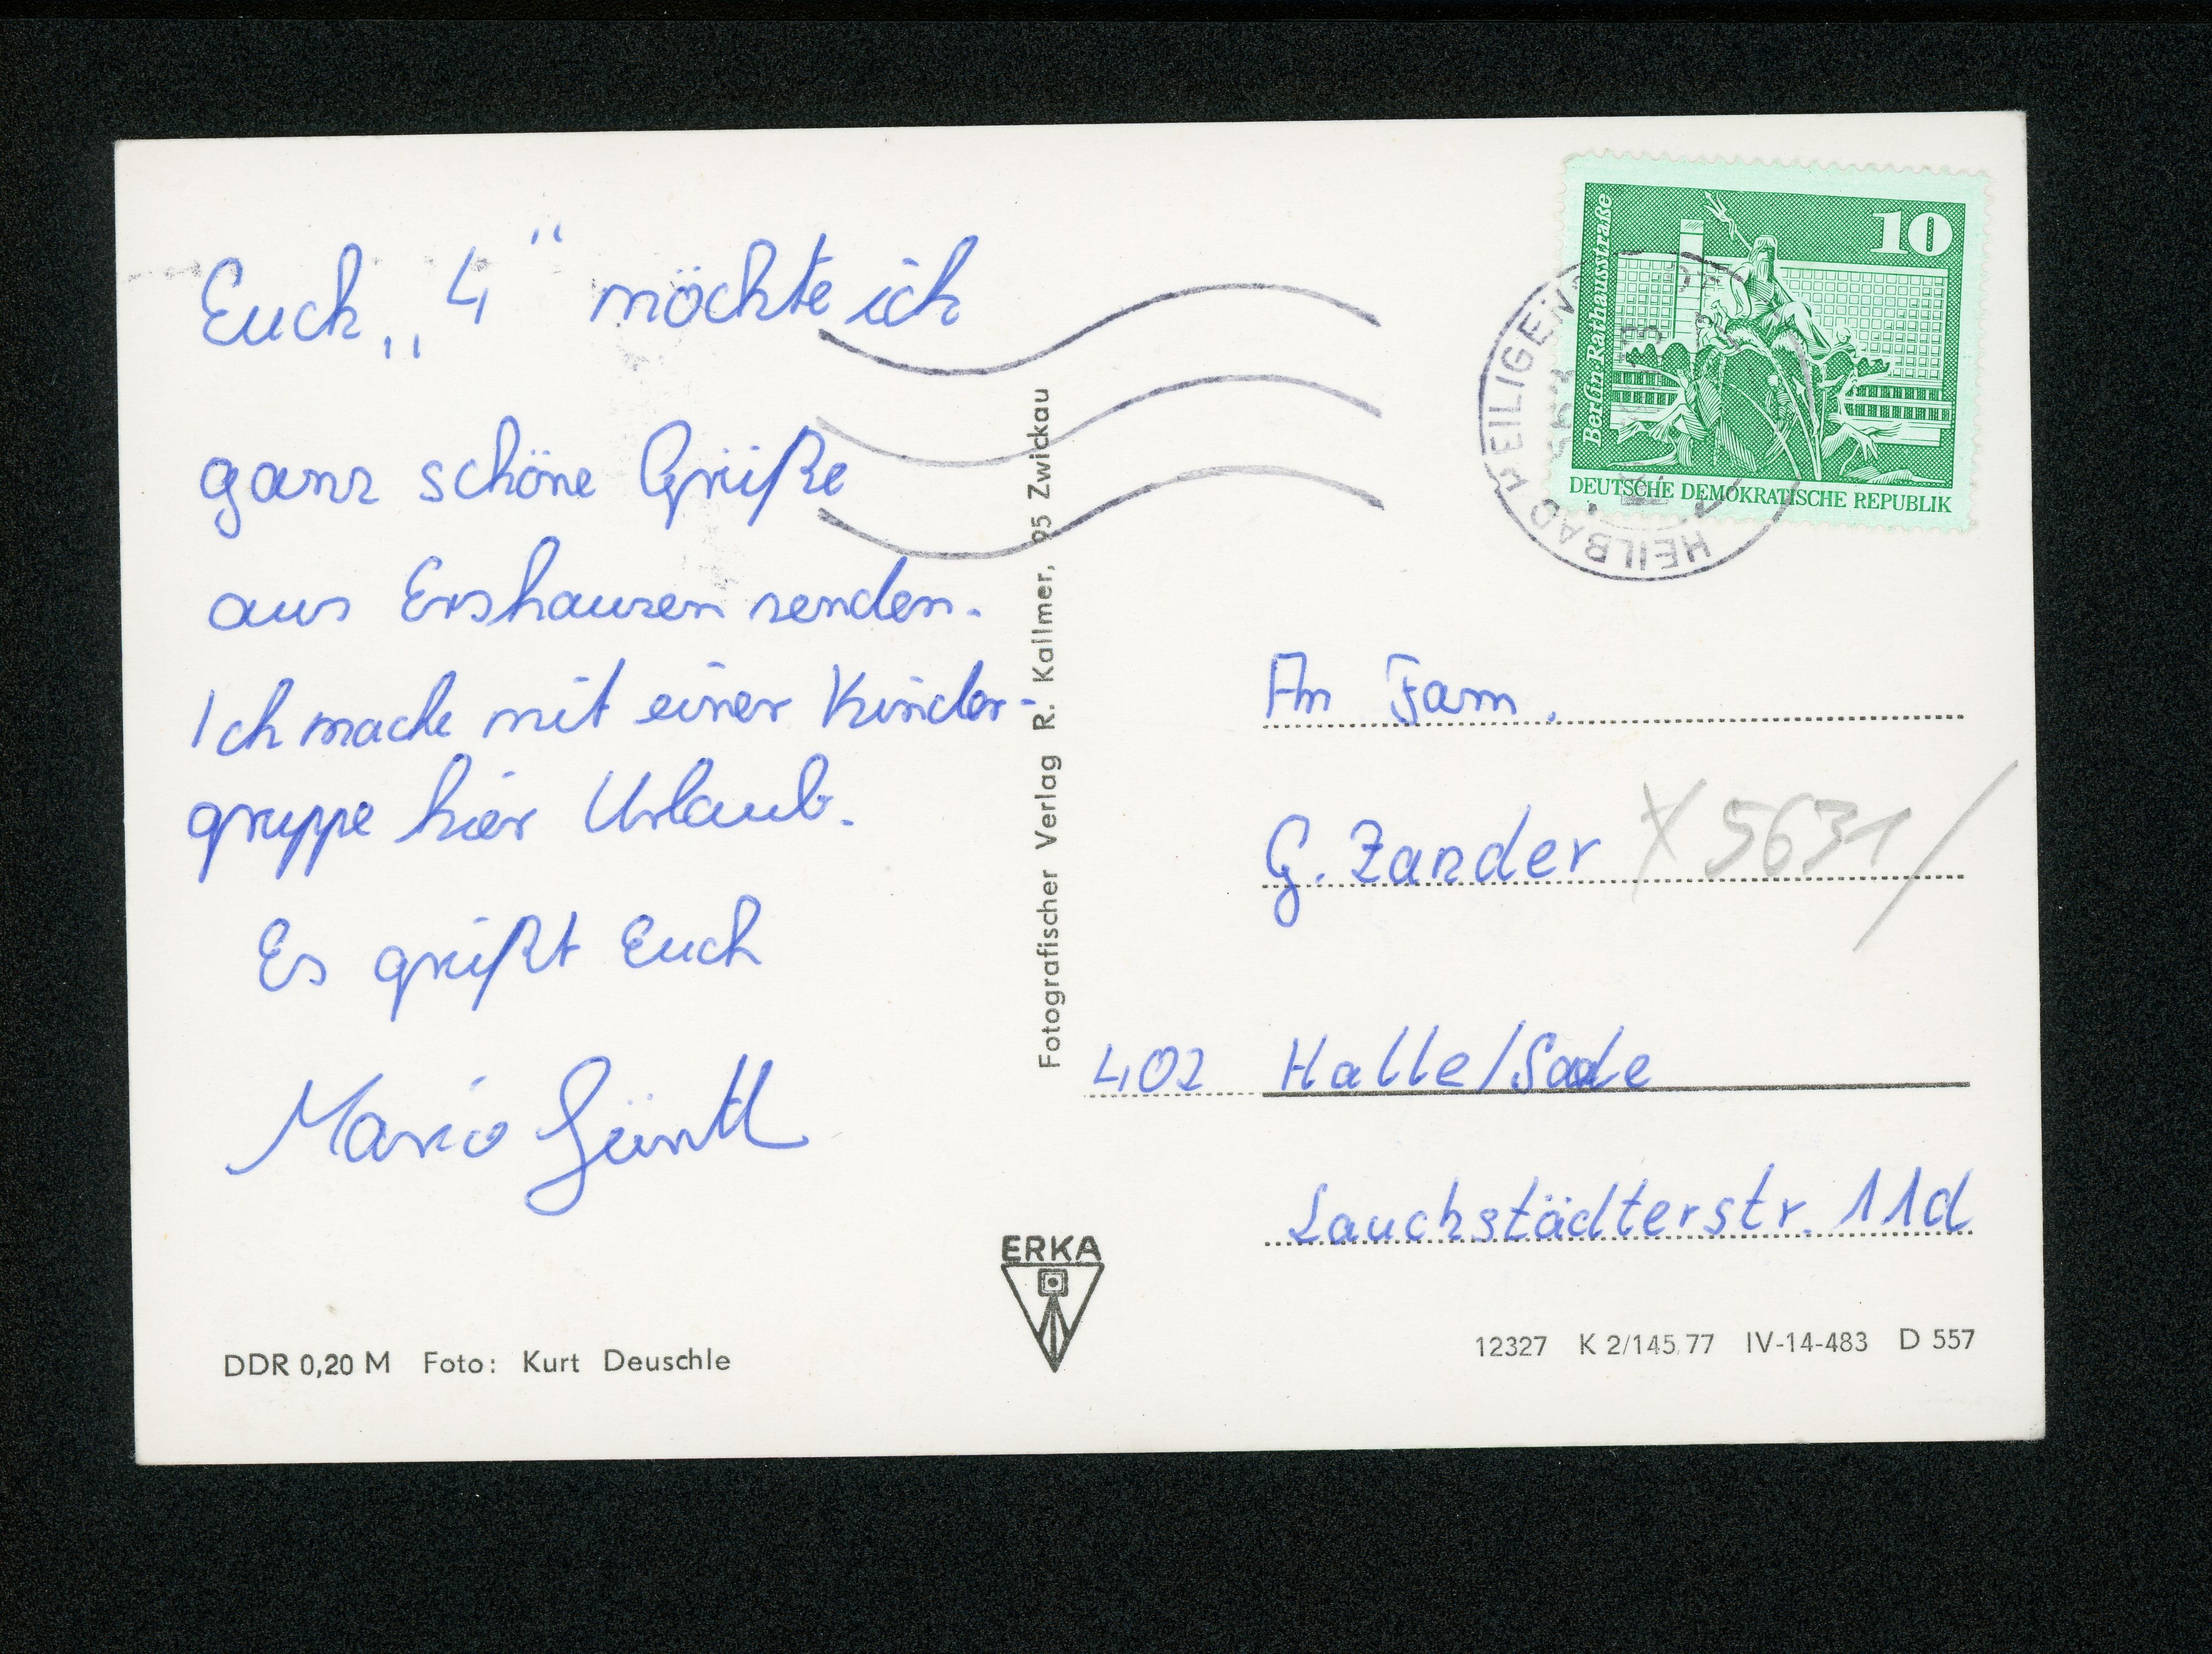 Euch „4“ möchte ich
ganz schöne Grüße
aus Ershausen senden.
Ich mache mit einer Kinder-
gruppe hier Urlaub.
Es grüßt Euch
Mario
DDR 0,20 M Foto: Kurt Deuschle
Fotografischer Verlag R. Kallmer, 95 Zwickau
ERKA
10
Berlin, Rathausstraße
DEUTSCHE DEMOKRATISCHE REPUBLIK
HEILBAD HEILIGENSTADT
An Fam.
G. Zander X 5631/
402 Halle/Saale
Lauchstädterstr. 11d
12327 K 2/145 77 IV-14-483 D 557